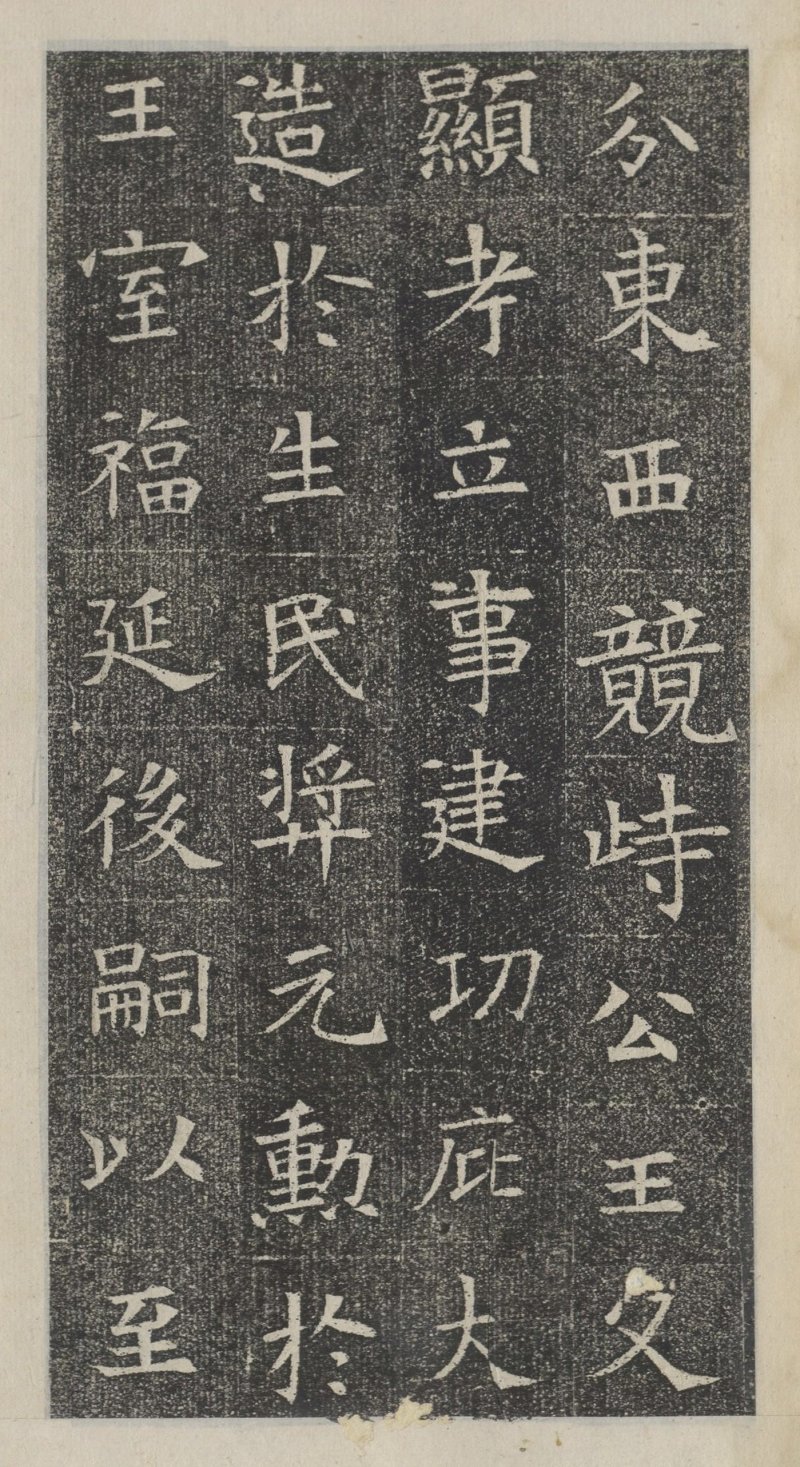 分東西競峙公王文
顯考立事建功庇大
造於生民獎元勳於
王室福延後嗣以至